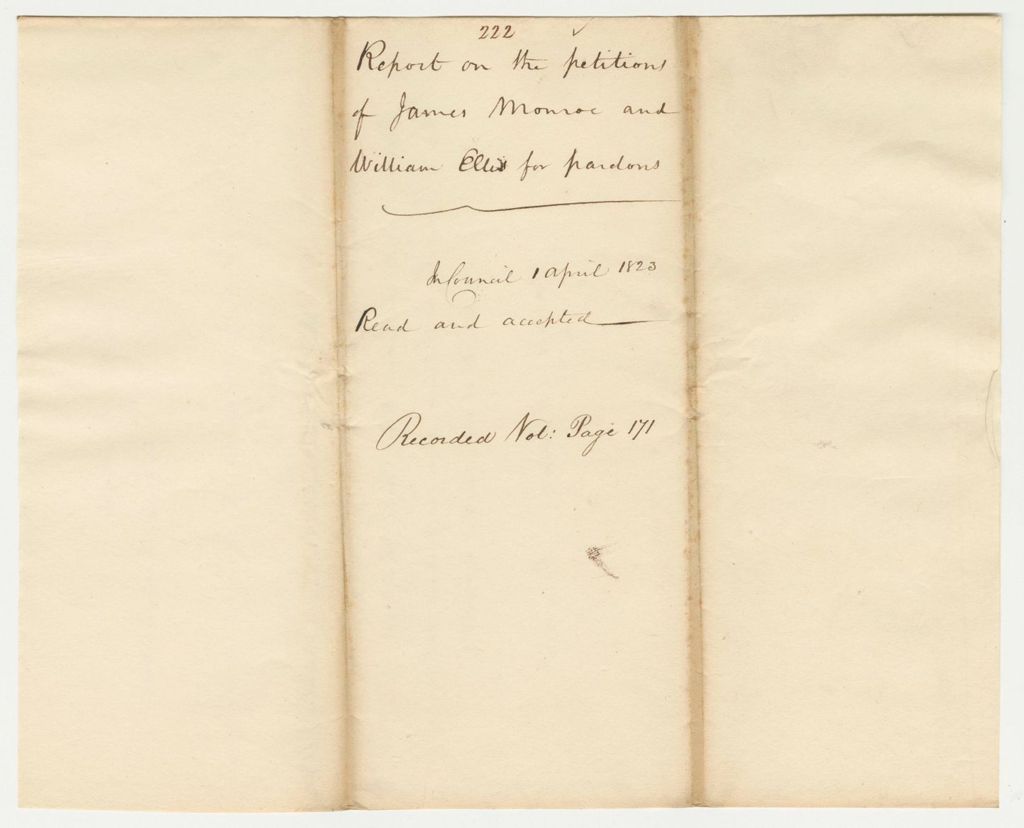 222
Report on the petitions
of James Monroe and
William Ellis for pardons
In Council 1 April 1823
Read and accepted
Recorded Vol: Page 171